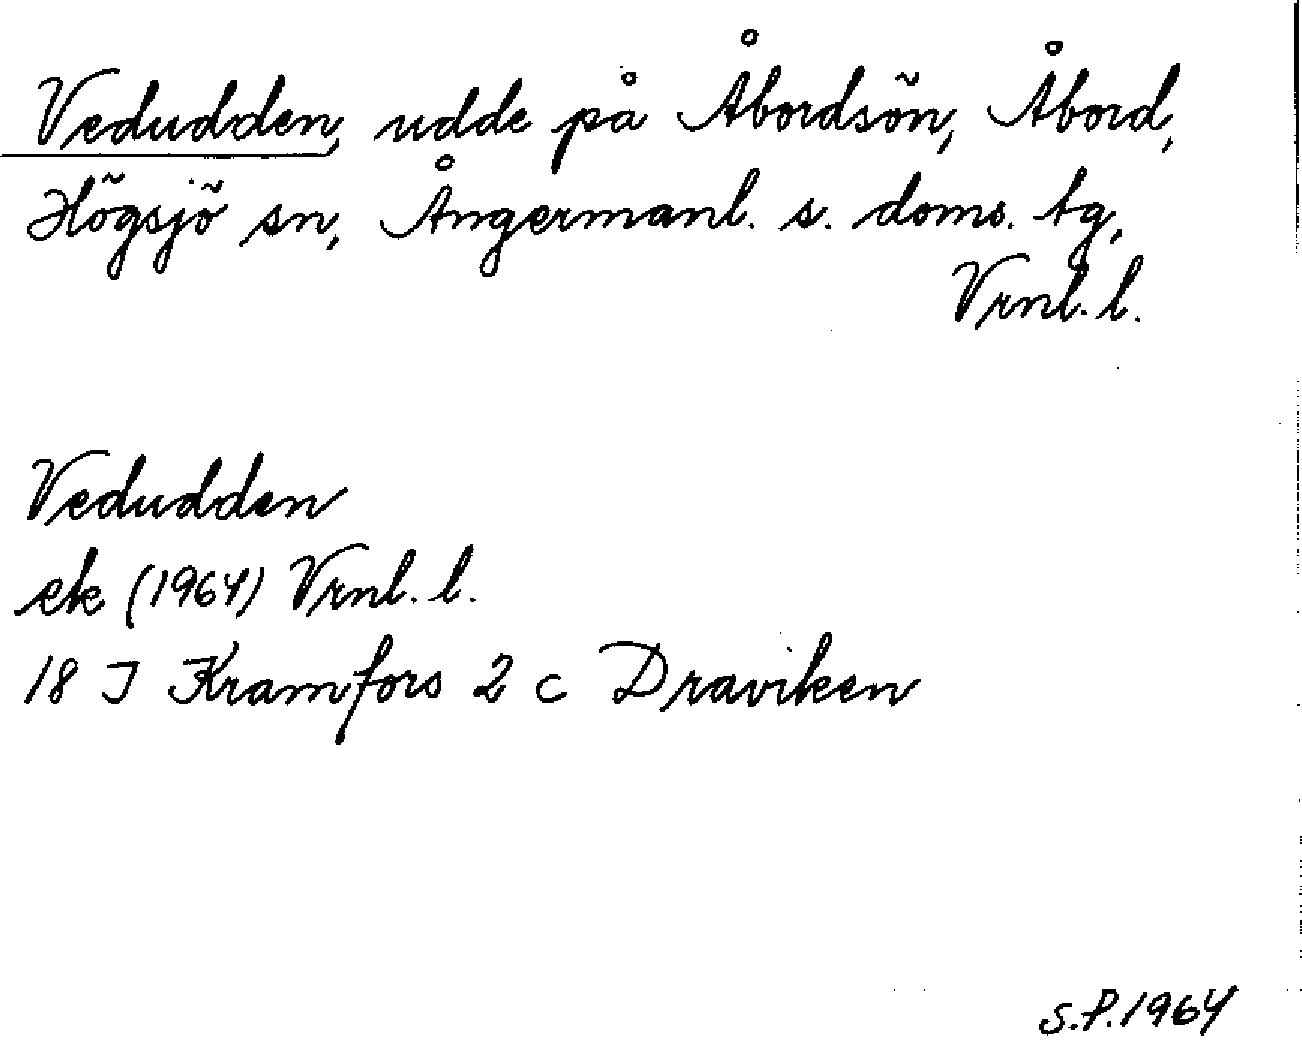 Vedudden, udde på Åbordsön, Åbord,
Högsjö sn, Ångermanl. s. doms. tg,
Vrnl. l.
Vedudden
ek (1964) Vrnl. l.
18 J Kramfors 2 c Draviken
S.P. 1964